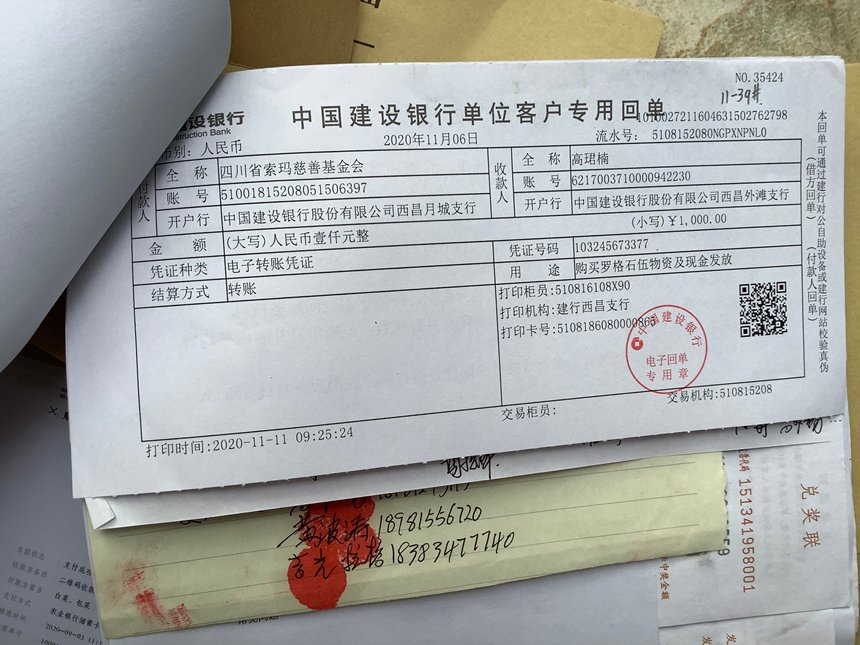 NO.35424
11-39#
设银行
struction Bank
中国建设银行单位客户专用回单
1010027211604631502762798
币别：人民币
2020年11月06日
流水号：5108152080NGPXNPNL0
付款人
全 称 四川省索玛慈善基金会
账 号 51001815208051506397
开户行 中国建设银行股份有限公司西昌月城支行
收款人
全 称 高珺楠
账 号 6217003710000942230
开户行 中国建设银行股份有限公司西昌外滩支行
金 额 (大写)人民币壹仟元整
(小写)￥1,000.00
凭证种类 电子转账凭证
凭证号码 103245673377
结算方式 转账
用 途 购买罗格石伍物资及现金发放
打印柜员:510816108X90
打印机构:建行西昌支行
打印卡号:5108186080000865
中国建设银行
电子回单
专用章
打印时间:2020-11-11 09:25:24
交易柜员:
交易机构:510815208
本回单可通过建行对公自助设备或建行网站校验真伪
(借方回单)
(付款人回单)
18981556720
18383477740
兑奖联
151341958001
中奖金额
当前状态
支付成功
收款方备注
二维码收款
付款方留言
白菜，包菜
支付方式
农业银行储蓄卡
转账时间
2020-09-03 11: